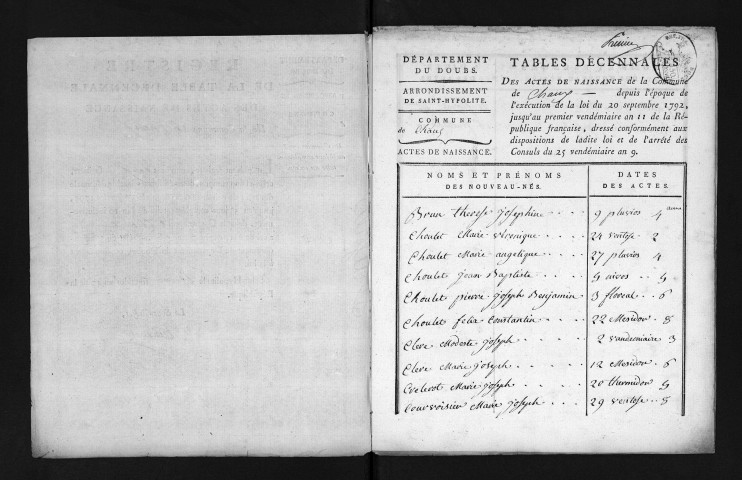 DÉPARTEMENT
DU DOUBS.
ARRONDISSEMENT
DE SAINT-HYPOLITE.
COMMUNE
de Chaux
ACTES DE NAISSANCE.
TABLES DÉCENNALES
DES ACTES DE NAISSANCE de la Commune
de Chaux — depuis l'époque de
l'exécution de la loi du 20 septembre 1792,
jusqu'au premier vendémiaire an 11 de la Ré-
publique française, dressé conformément aux
dispositions de ladite loi et de l'arrêté des
Consuls du 25 vendémiaire an 9.
NOMS ET PRÉNOMS
DES NOUVEAU-NÉS.
DATES
DES ACTES.
Brun therese josephine . . . . 9 pluvios 4
Choulet Marie veronique . . . . 24 ventose 2
Choulet Marie angelique . . . . 27 pluvios 4
Choulet jean Baptiste . . . . nivos
Choulet pierre joseph Benjamin . 3 floreal . . 6
Choulet felix Constantin . . . . 22 Mesidor . 8
Clerc Modeste joseph . . . . 2 vandemiaire 3
Clerc Marie joseph . . . . 12 Mesidor . 6
Marie joseph . . . . 20 thermidor
Courvoisier Marie joseph . . . . 29 ventose . . 8